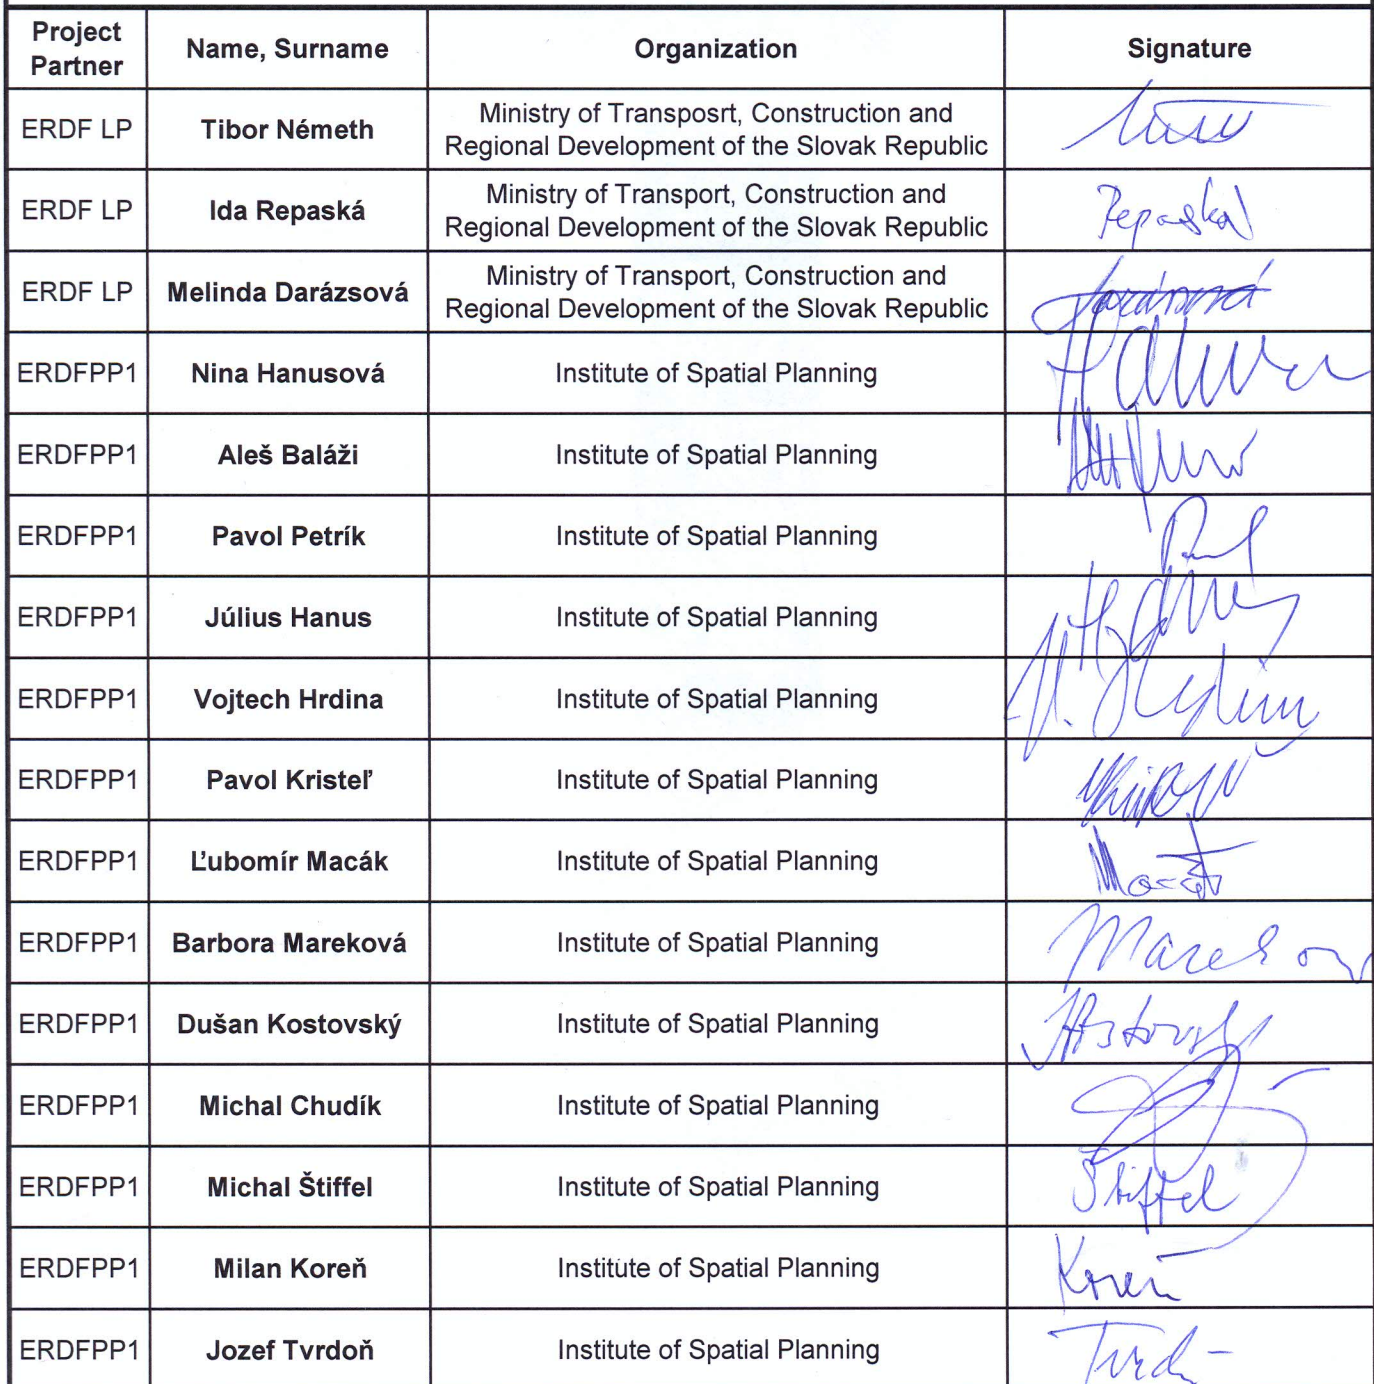 Project Partner Name, Surname Organization Signature
ERDF LP Tibor Németh Ministry of Transposrt, Construction and
Regional Development of the Slovak Republic
ERDF LP Ida Repaská Ministry of Transport, Construction and
Regional Development of the Slovak Republic Repaská
ERDF LP Melinda Darázsová Ministry of Transport, Construction and
Regional Development of the Slovak Republic
ERDFPP1 Nina Hanusová Institute of Spatial Planning
ERDFPP1 Aleš Baláži Institute of Spatial Planning
ERDFPP1 Pavol Petrík Institute of Spatial Planning
ERDFPP1 Július Hanus Institute of Spatial Planning
ERDFPP1 Vojtech Hrdina Institute of Spatial Planning
ERDFPP1 Pavol Kristeľ Institute of Spatial Planning
ERDFPP1 Ľubomír Macák Institute of Spatial Planning
ERDFPP1 Barbora Mareková Institute of Spatial Planning
ERDFPP1 Dušan Kostovský Institute of Spatial Planning
ERDFPP1 Michal Chudík Institute of Spatial Planning
ERDFPP1 Michal Štiffel Institute of Spatial Planning Štiffel
ERDFPP1 Milan Koreň Institute of Spatial Planning Koreň
ERDFPP1 Jozef Tvrdoň Institute of Spatial Planning